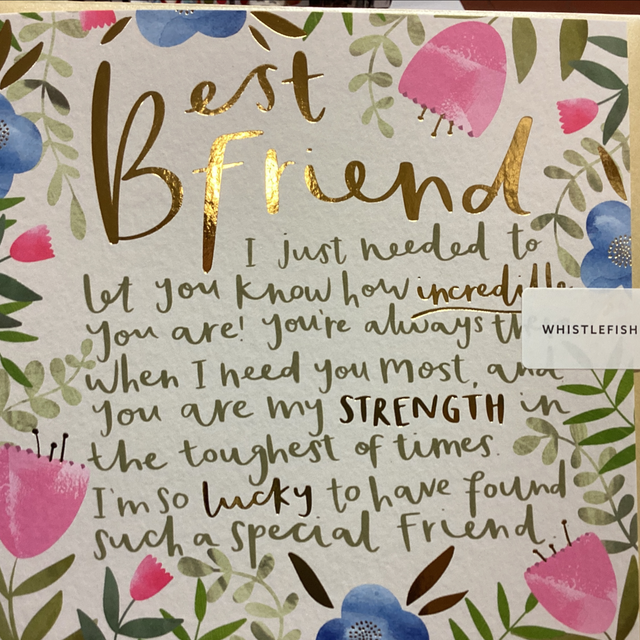 Best
Friend
I just needed to
let you know how incredible
you are! you're always there
when I need you most, and
you are my STRENGTH in
the toughest of times.
I'm so lucky to have found
such a special friend.
WHISTLEFISH